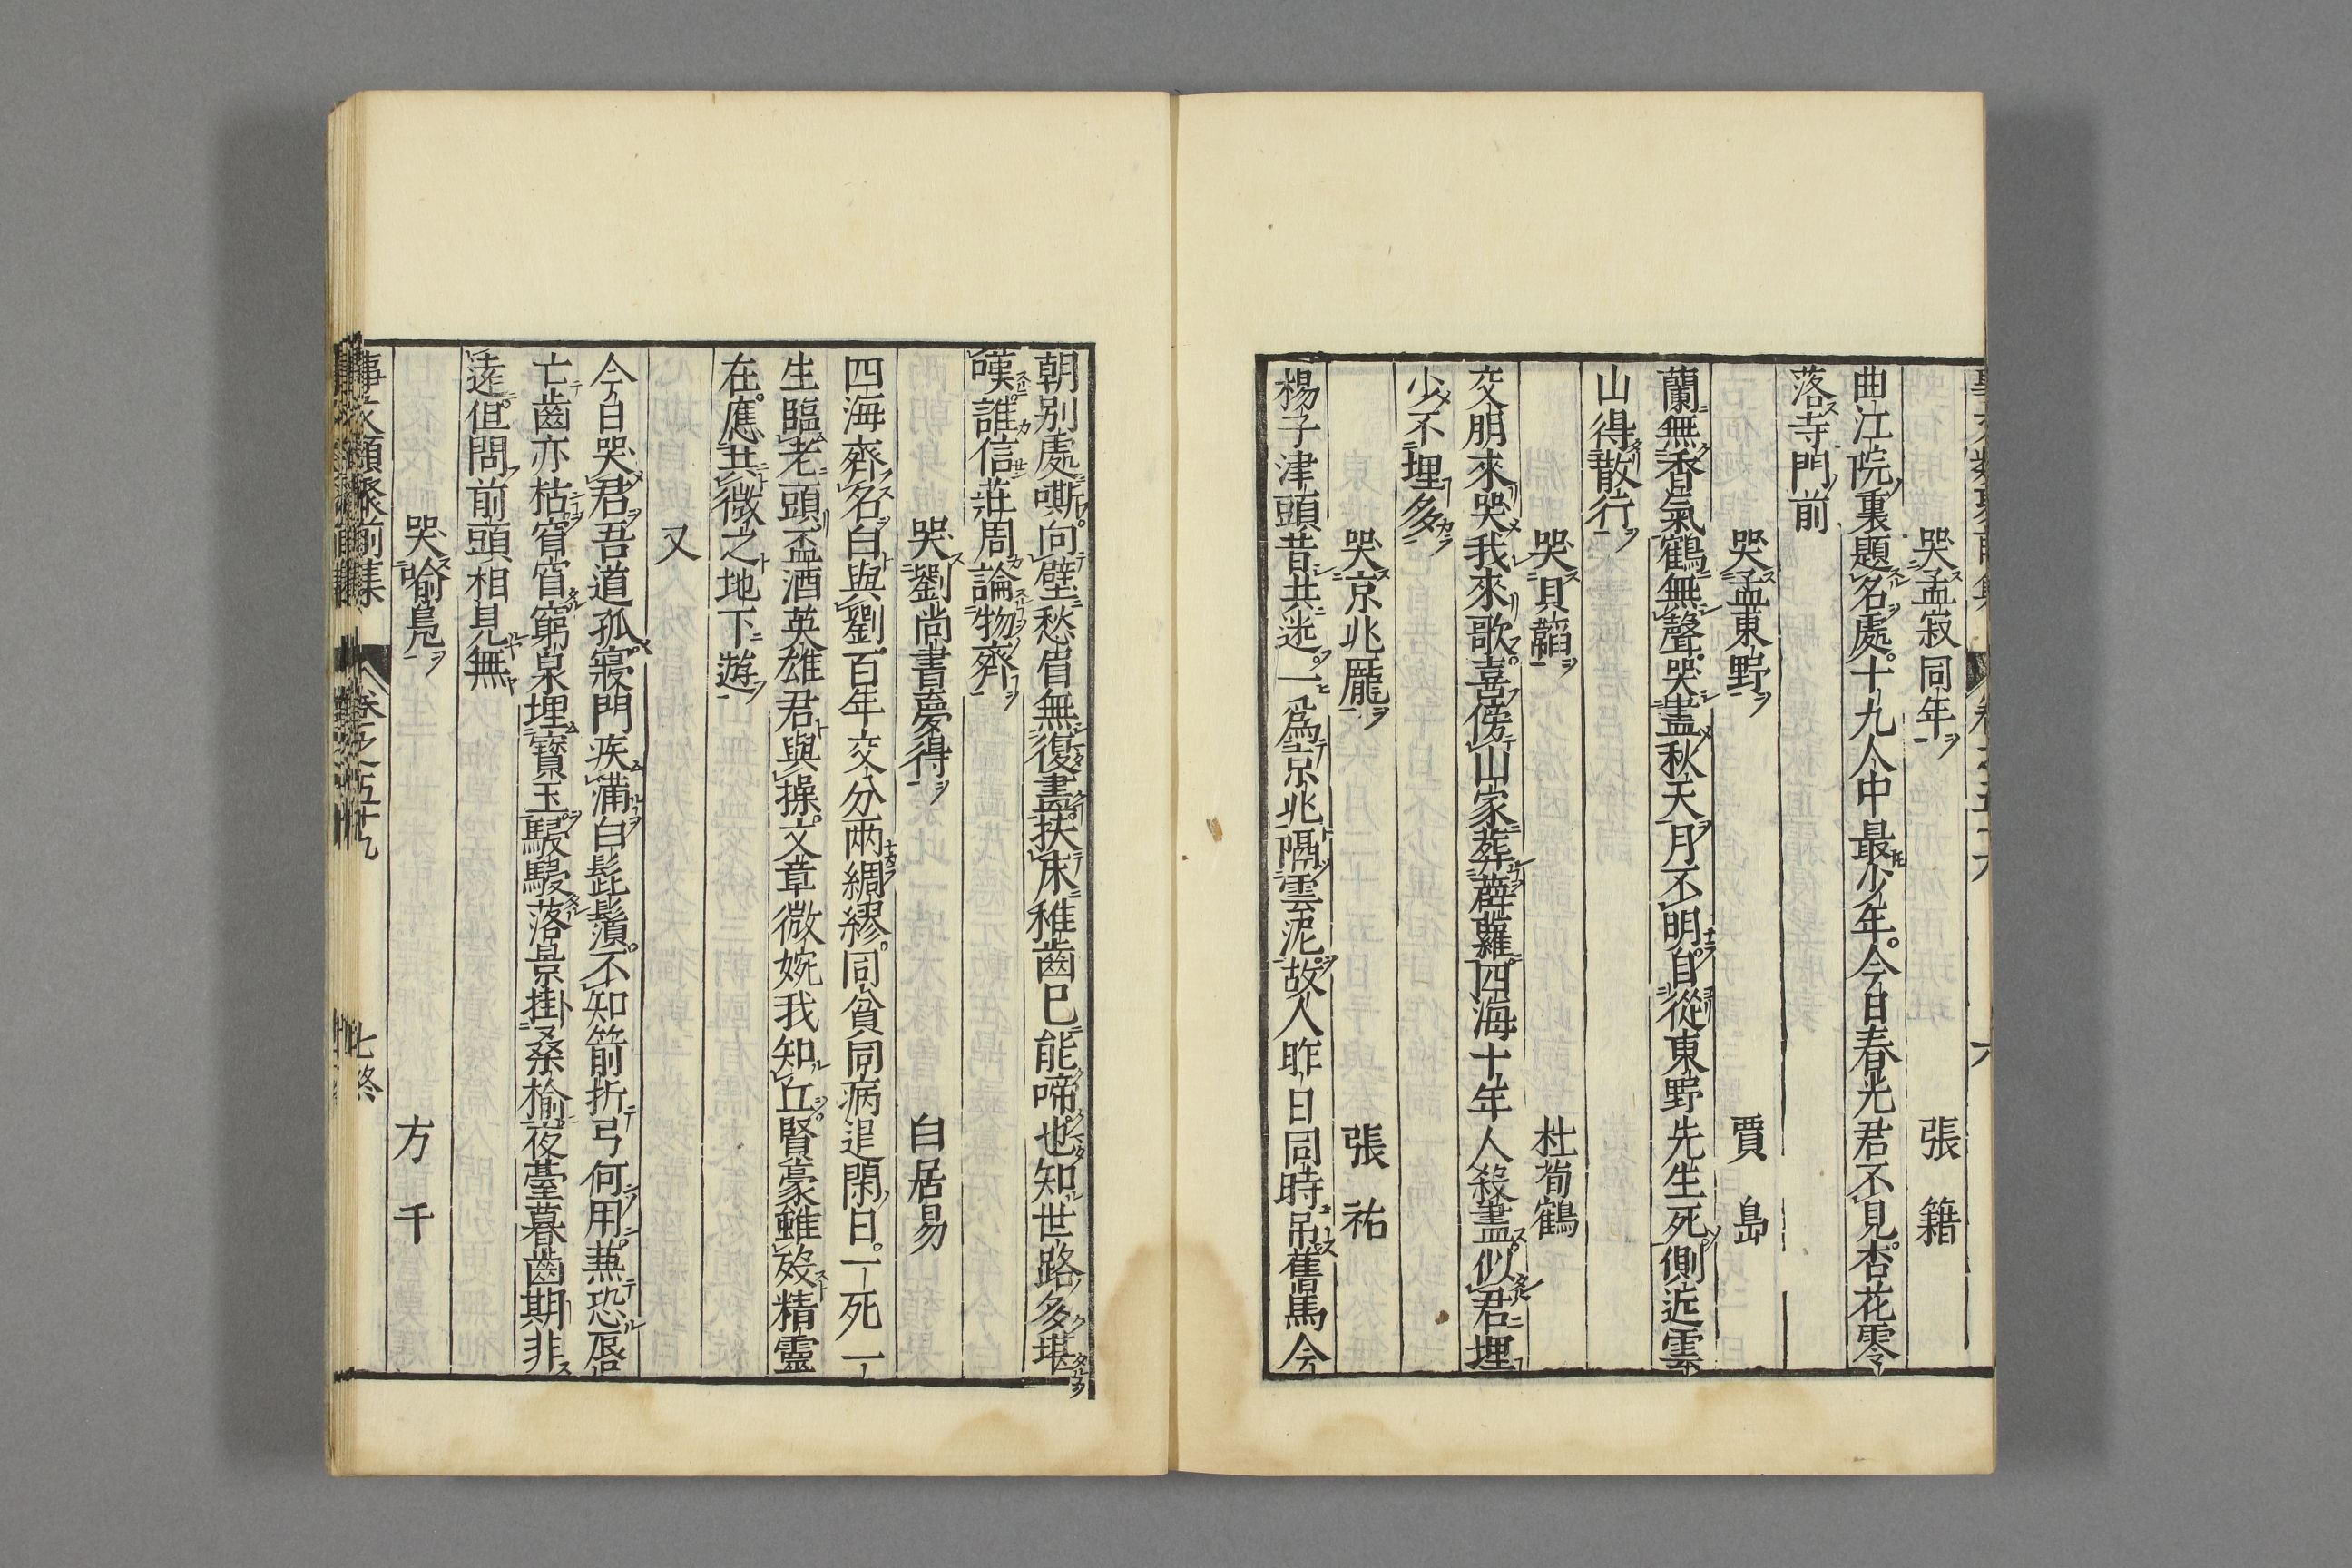 哭孟寂同年　張籍
曲江院裏題名處十九人中最少年今日春光君不見杏花零
落寺門前
哭孟東野　賈島
蘭無香氣鶴無聲哭盡秋天月不明自從東野先生死側近雲
山得散行
哭貝韜　杜荀鶴
交朋來哭我來歌喜傍山家葬薜蘿四海十年人殺盡似君埋
少不埋多
哭京兆龐　張祐
楊子津頭昔共迷一爲京兆隔雲泥故人昨日同時吊舊馬今
朝别處嘶向壁愁眉無復畫扶床稚齒已能啼也知世路多堪
嘆誰信莊周論物齊
哭劉尚書夢得　白居易
四海齊名白與劉百年交分兩綢繆同貧同病退閑日一死一
生臨老頭盃酒英雄君與操文章微婉我知丘賢豪雖歿精靈
在應共微之地下遊
又
今日哭君吾道孤寢門疾滿白髭鬚不知箭折弓何用兼恐唇
亡齒亦枯窅窅窮泉埋寳玉駸駸落景掛桑榆夜臺暮齒期非
遠但問前頭相見無
哭喻鳧　方干
事文類聚前集　卷之五十九　七終